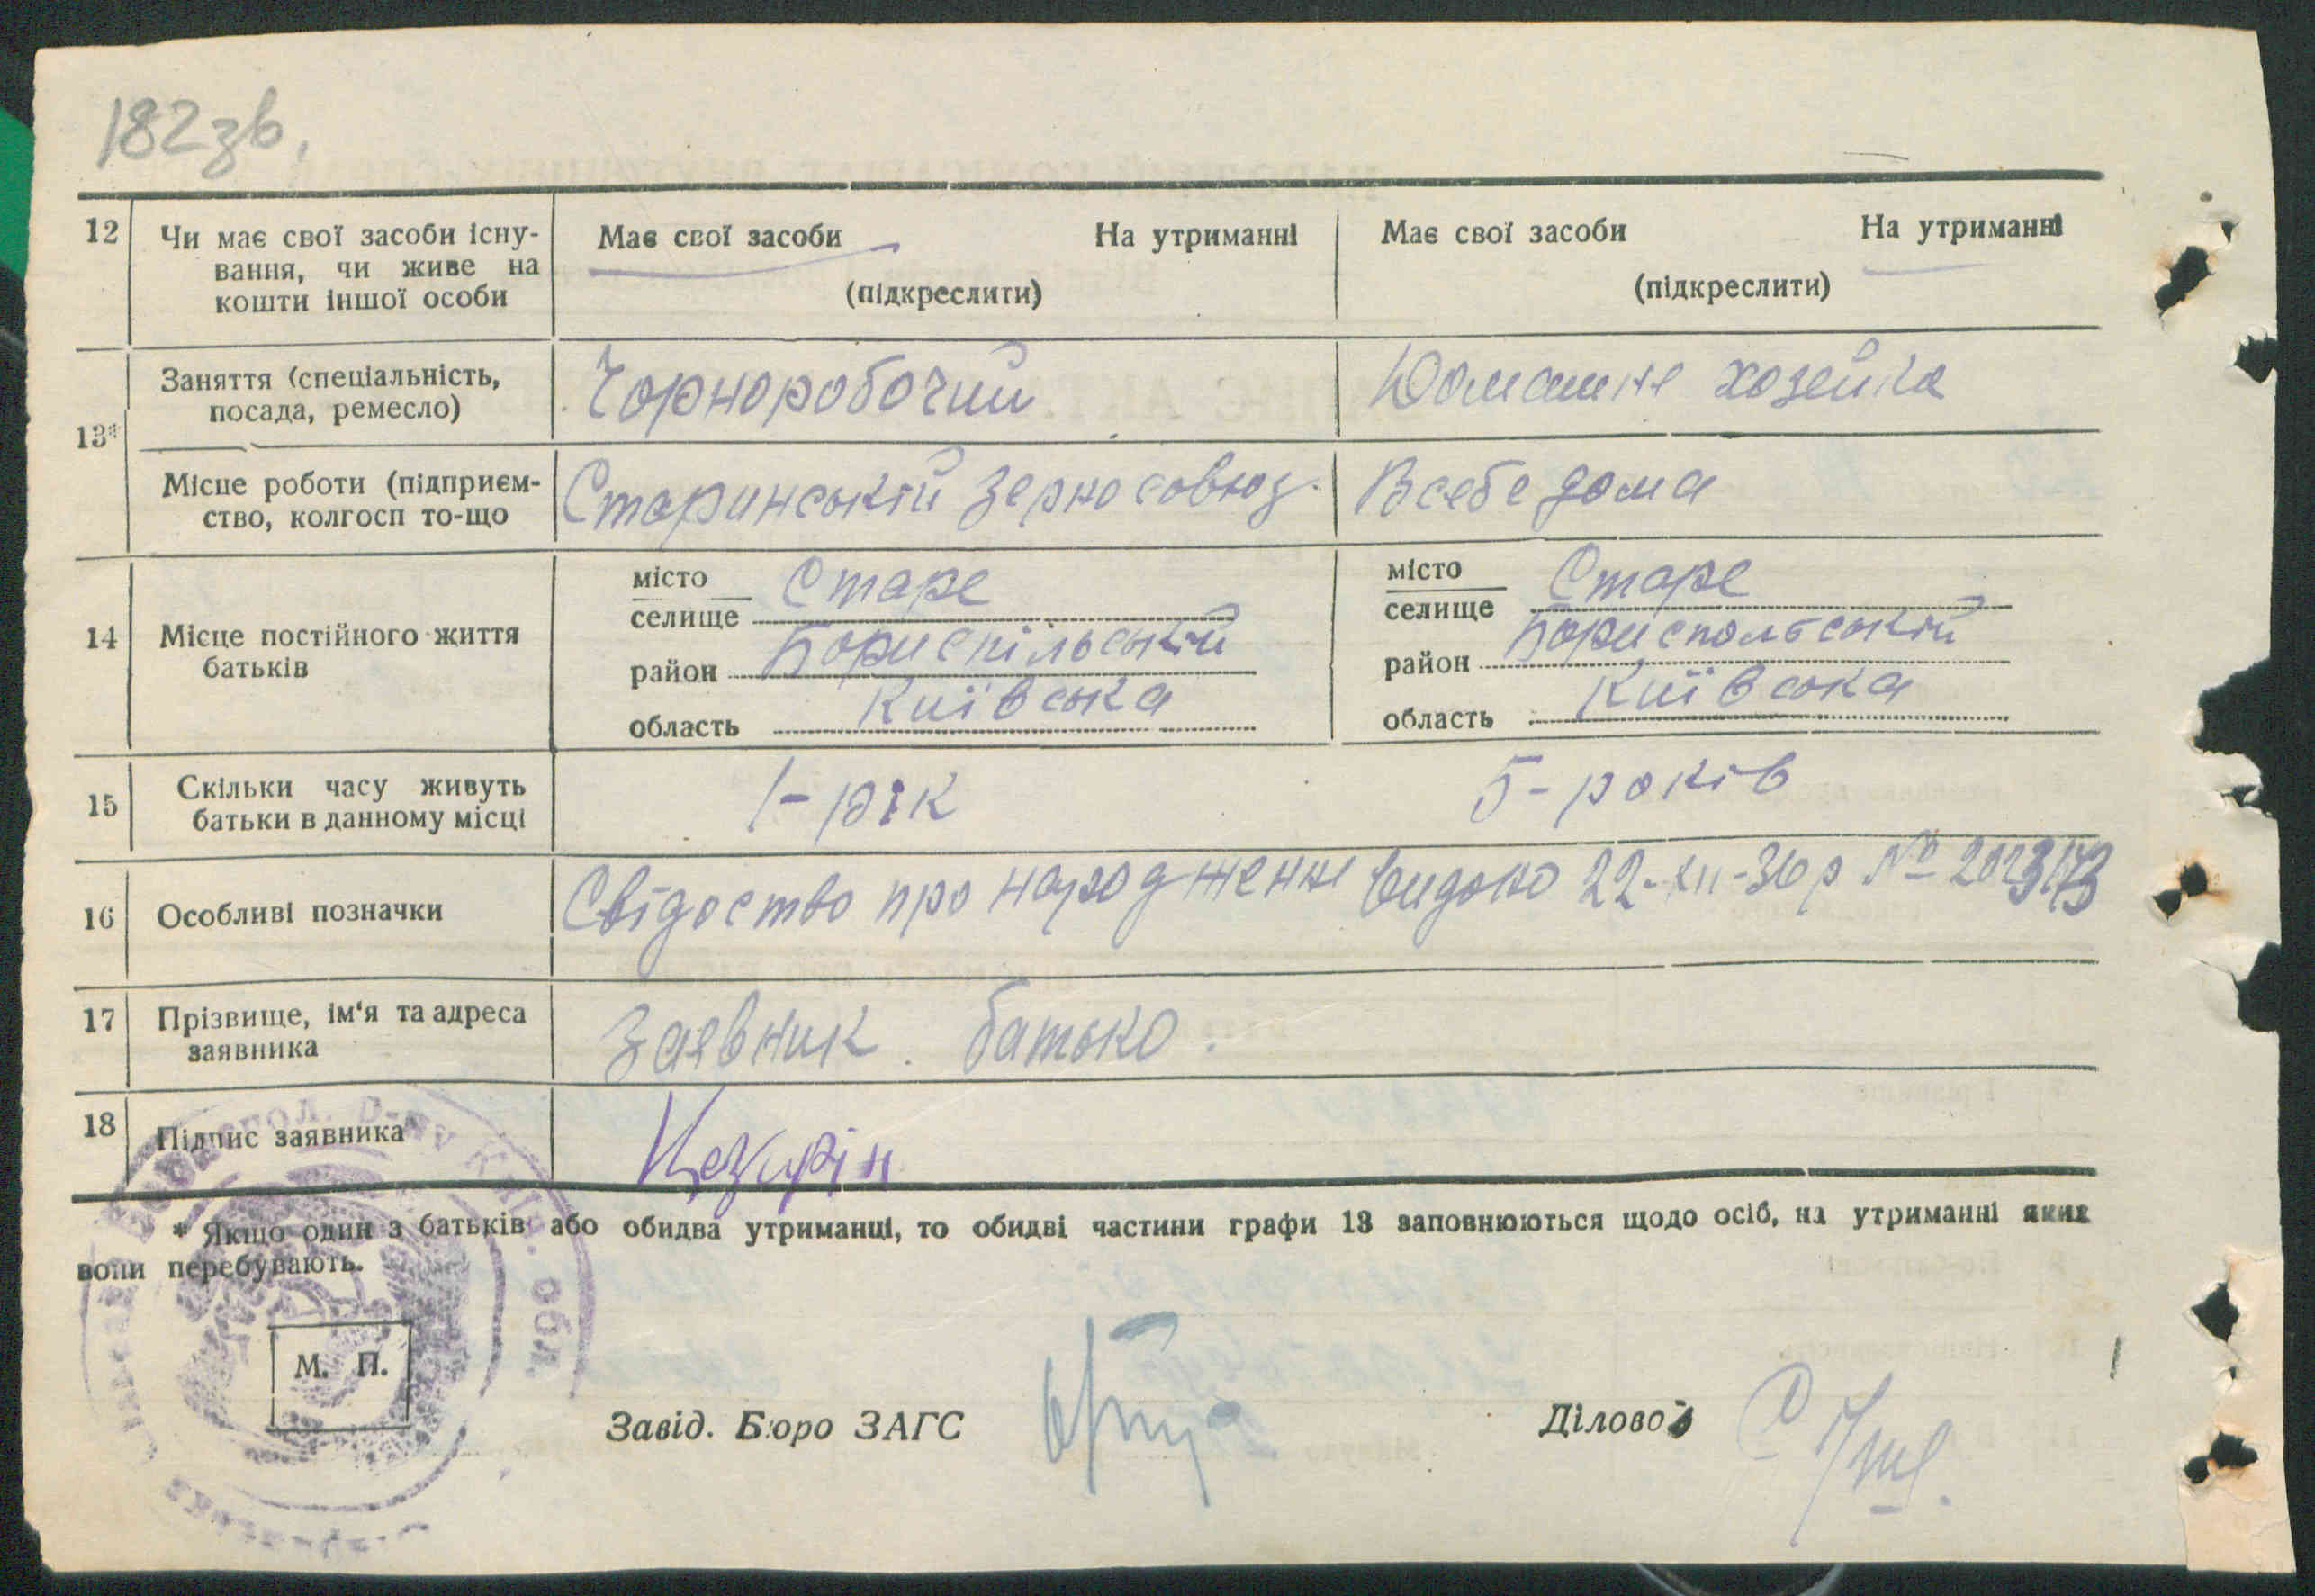 182 зв.
12 Чи має свої засоби існу-
вання, чи живе на
кошти іншої особи
Має свої засоби На утриманні
(підкреслити)
Має свої засоби На утриманні
(підкреслити)
13*
Заняття (спеціальність,
посада, ремесло)
Чорноробочий
Домашне хозейка
Місце роботи (підприєм-
ство, колгосп то-що
Старинський Зерносовюз.
В себе дома
14 Місце постійного життя
батьків
місто
селище Старе
район Бориспільській
область Київська
місто
селище Старе
район Бориспольській
область Київська
15 Скільки часу живуть
батьки в данному місці
1-рік
5-років
16 Особливі позначки
Свідоство про народженне видоно 22-XII-36 р №
17 Прізвище, ім'я та адреса
заявника
Заевник. батько.
18 Підпис заявника
* Якщо один з батьків або обидва утриманці, то обидві частини графи 13 заповнюються щодо осіб, на утриманні яких
вони перебувають.
М. П.
Завід. Бюро ЗАГС
Діловод